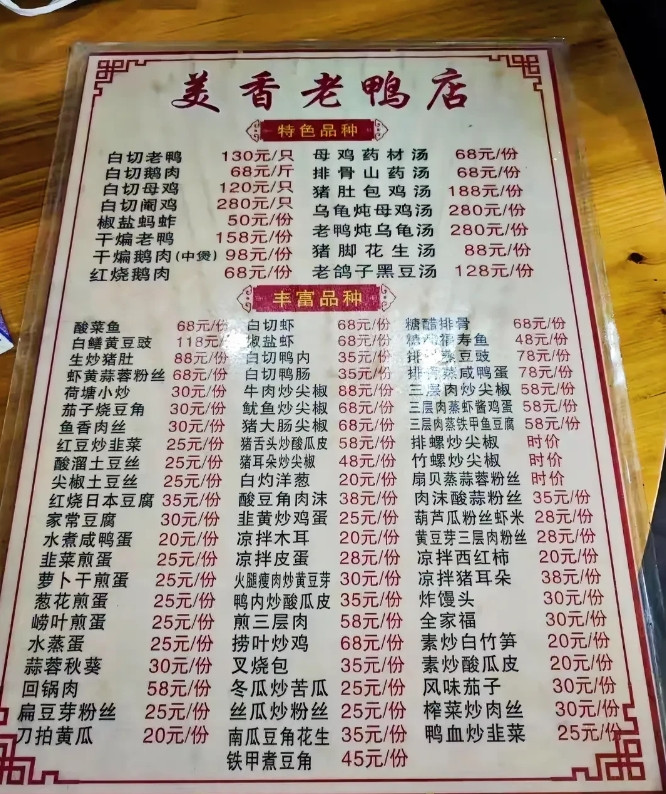 美香老鸭店
特色品种
白切老鸭 130元/只
白切鹅肉 68元/斤
白切母鸡 120元/只
白切阉鸡 280元/只
椒盐蚂蚱 50元/份
干煸老鸭 158元/份
干煸鹅肉(中煲) 98元/份
红烧鹅肉 68元/份
母鸡药材汤 68元/份
排骨山药汤 68元/份
猪肚包鸡汤 188元/份
乌龟炖母鸡汤 280元/份
老鸭炖乌龟汤 280元/份
猪脚花生汤 88元/份
老鸽子黑豆汤 128元/份
丰富品种
酸菜鱼 68元/份
白鳝黄豆豉 118元/份
生炒猪肚 88元/份
虾黄蒜蓉粉丝 68元/份
荷塘小炒 30元/份
茄子烧豆角 30元/份
鱼香肉丝 30元/份
红豆炒韭菜 25元/份
酸溜土豆丝 25元/份
尖椒土豆丝 25元/份
红烧日本豆腐 35元/份
家常豆腐 30元/份
水煮咸鸭蛋 20元/份
韭菜煎蛋 25元/份
萝卜干煎蛋 25元/份
葱花煎蛋 25元/份
崂叶煎蛋 25元/份
水蒸蛋 25元/份
蒜蓉秋葵 30元/份
回锅肉 58元/份
扁豆芽粉丝 25元/份
刀拍黄瓜 20元/份
白切虾 68元/份
椒盐虾 68元/份
白切鸭内 35元/份
白切鸭肠 35元/份
牛肉炒尖椒 68元/份
鱿鱼炒尖椒 68元/份
猪大肠尖椒 68元/份
猪舌头炒酸瓜皮 58元/份
猪耳朵炒尖椒 48元/份
白灼洋葱 20元/份
酸豆角肉沫 38元/份
韭黄炒鸡蛋 25元/份
凉拌木耳 20元/份
凉拌皮蛋 28元/份
火腿瘦肉炒黄豆芽 30元/份
鸭内炒酸瓜皮 35元/份
煎三层肉 58元/份
捞叶炒鸡 68元/份
叉烧包 35元/份
冬瓜炒苦瓜 25元/份
丝瓜炒粉丝 25元/份
南瓜豆角花生 35元/份
铁甲煮豆角 45元/份
糖醋排骨 68元/份
福寿鱼 48元/份
豆豉 78元/份
咸鸭蛋 78元/份
三层肉炒尖椒 58元/份
三层肉蒸虾酱鸡蛋 58元/份
三层肉蒸铁甲鱼豆腐 58元/份
排螺炒尖椒 时价
竹螺炒尖椒 时价
扇贝蒸蒜蓉粉丝 时价
肉沫酸蒜粉丝 35元/份
葫芦瓜粉丝虾米 28元/份
黄豆芽三层肉粉丝 28元/份
凉拌西红柿 20元/份
凉拌猪耳朵 38元/份
炸馒头 30元/份
全家福 30元/份
素炒白竹笋 20元/份
素炒酸瓜皮 20元/份
风味茄子 30元/份
榨菜炒肉丝 30元/份
鸭血炒韭菜 25元/份